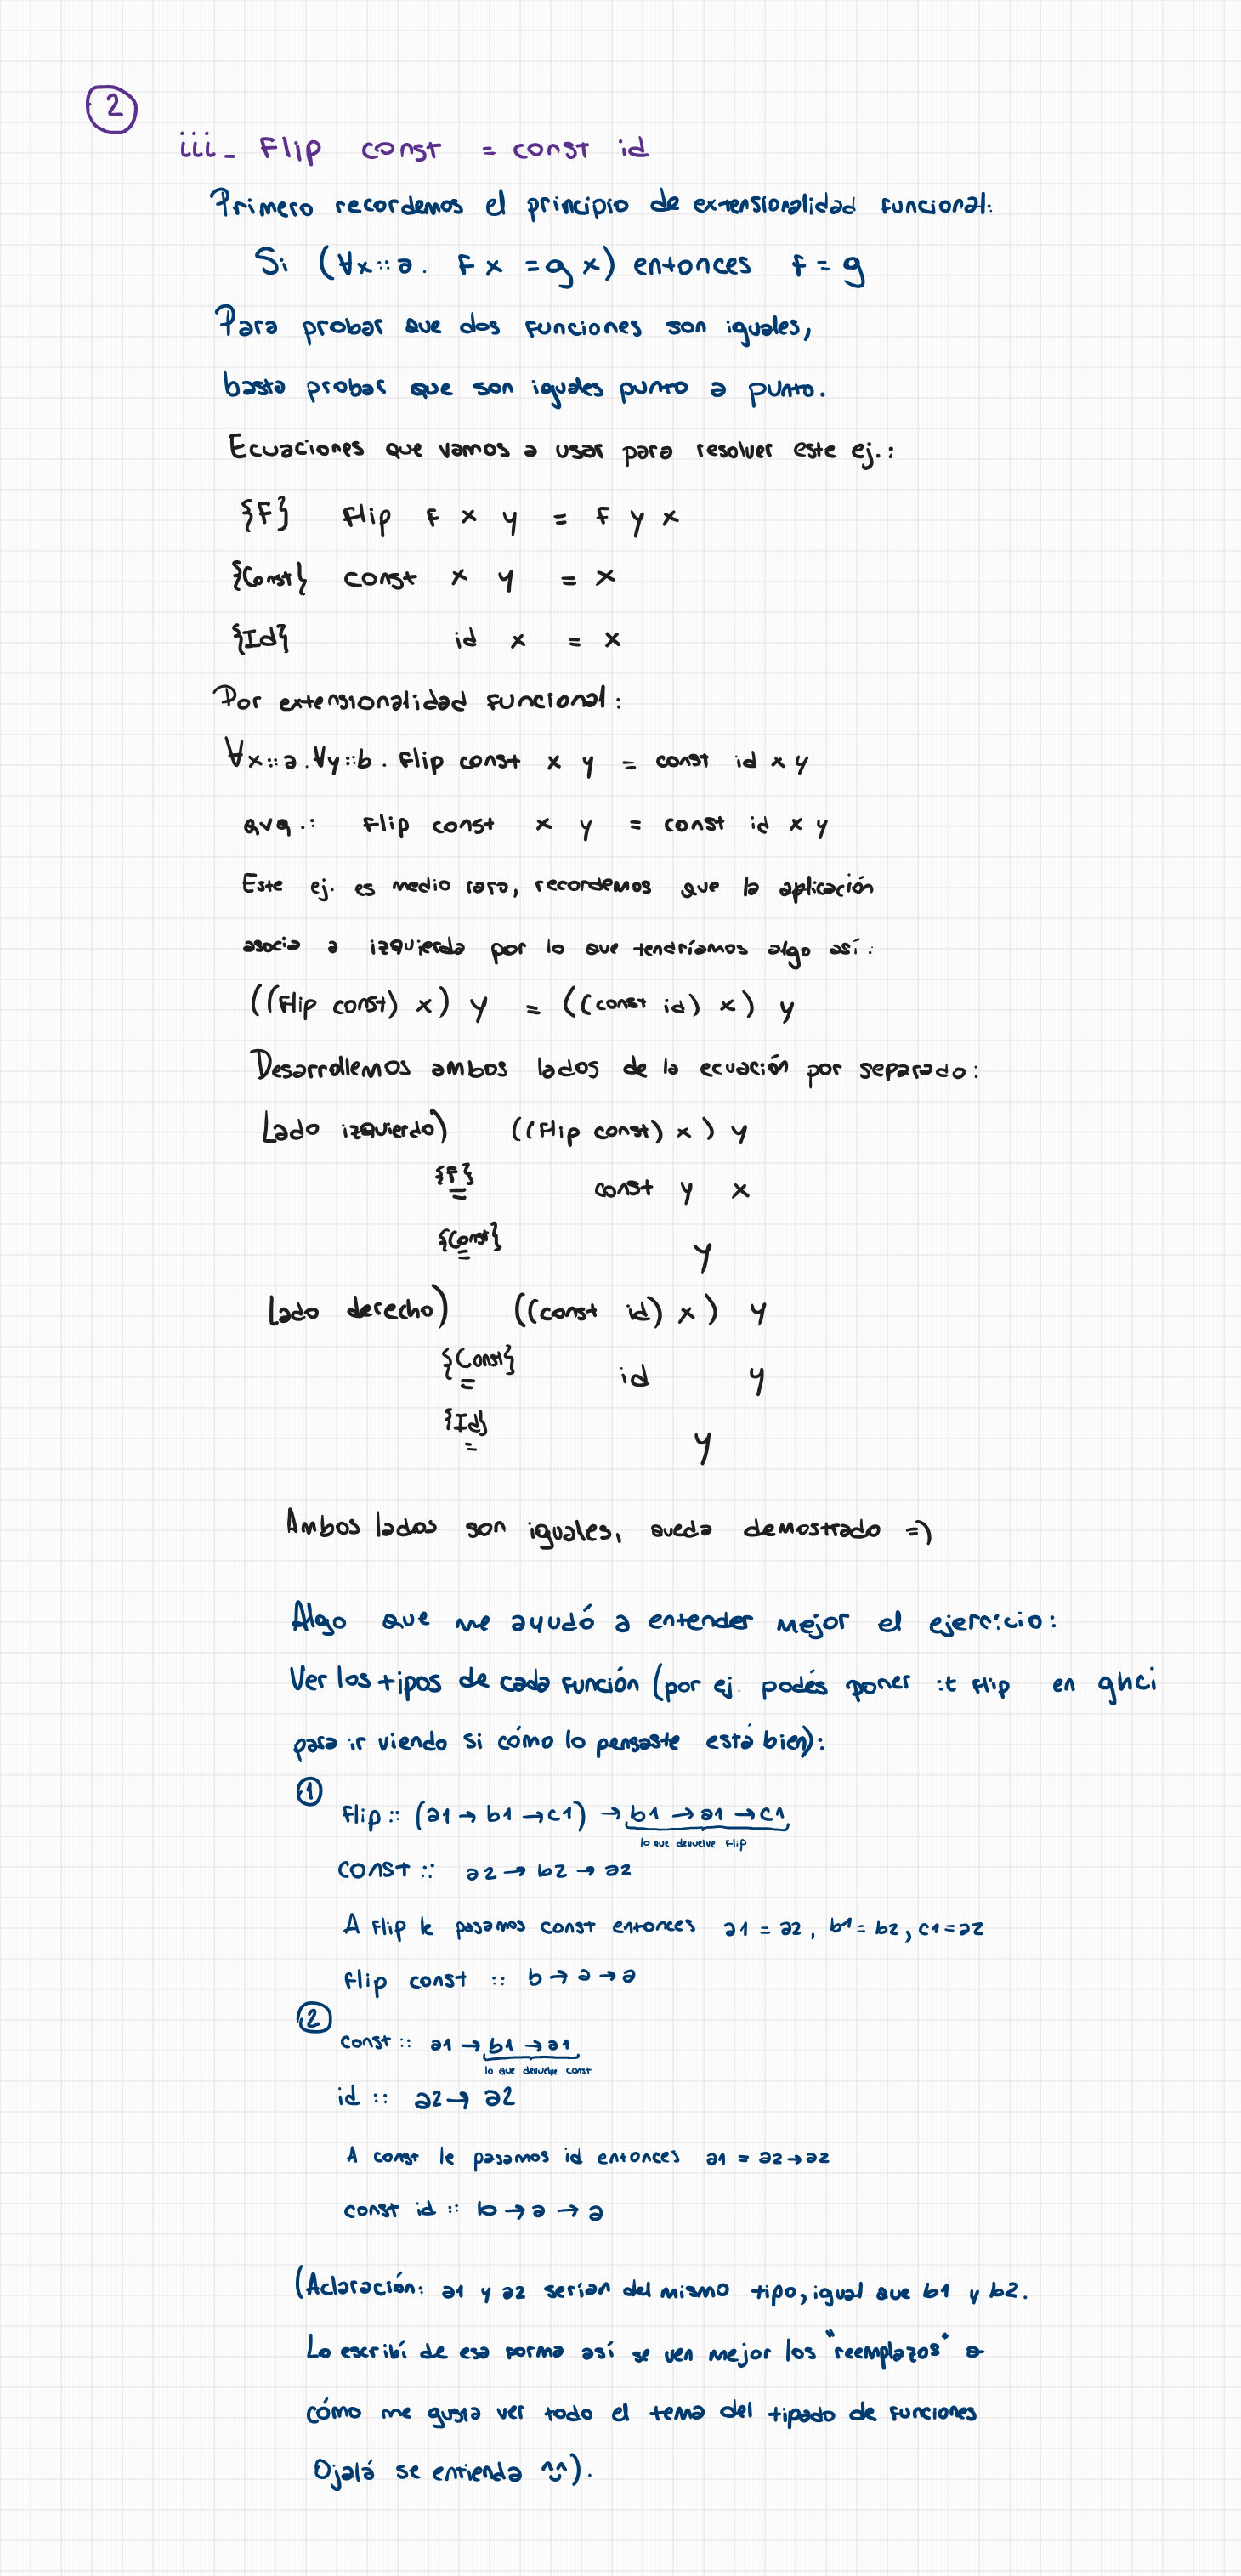 2
iii_ Flip const = const id
Primero recordemos el principio de extensionalidad funcional:
Si (∀x::a. F x = g x) entonces f = g
Para probar que dos funciones son iguales,
basta probar que son iguales punto a punto.
Ecuaciones que vamos a usar para resolver este ej.:
{F} flip f x y = f y x
{Const} const x y = x
{Id} id x = x
Por extensionalidad funcional:
∀x::a.∀y::b. flip const x y = const id x y
qvq.: flip const x y = const id x y
Este ej. es medio raro, recordemos que la aplicación
asocia a izquierda por lo que tendríamos algo así:
((flip const) x) y = ((const id) x) y
Desarrollemos ambos lados de la ecuación por separado:
Lado izquierdo) ((flip const) x) y
{F} = const y x
{Const} = y
Lado derecho) ((const id) x) y
{Const} = id y
{Id} = y
Ambos lados son iguales, queda demostrado =)
Algo que me ayudó a entender mejor el ejercicio:
Ver los tipos de cada función (por ej. podés poner :t flip en ghci
para ir viendo si cómo lo pensaste está bien):
1
flip :: (a1 → b1 → c1) → b1 → a1 → c1
lo que devuelve flip
const :: a2 → b2 → a2
A flip le pasamos const entonces a1 = a2, b1 = b2, c1 = a2
flip const :: b → a → a
2
const :: a1 → b1 → a1
lo que devuelve const
id :: a2 → a2
A const le pasamos id entonces a1 = a2 → a2
const id :: b → a → a
(Aclaración: a1 y a2 serían del mismo tipo, igual que b1 y b2.
Lo escribí de esa forma así se ven mejor los "reemplazos" o
cómo me gusta ver todo el tema del tipado de funciones
Ojalá se entienda ^^).